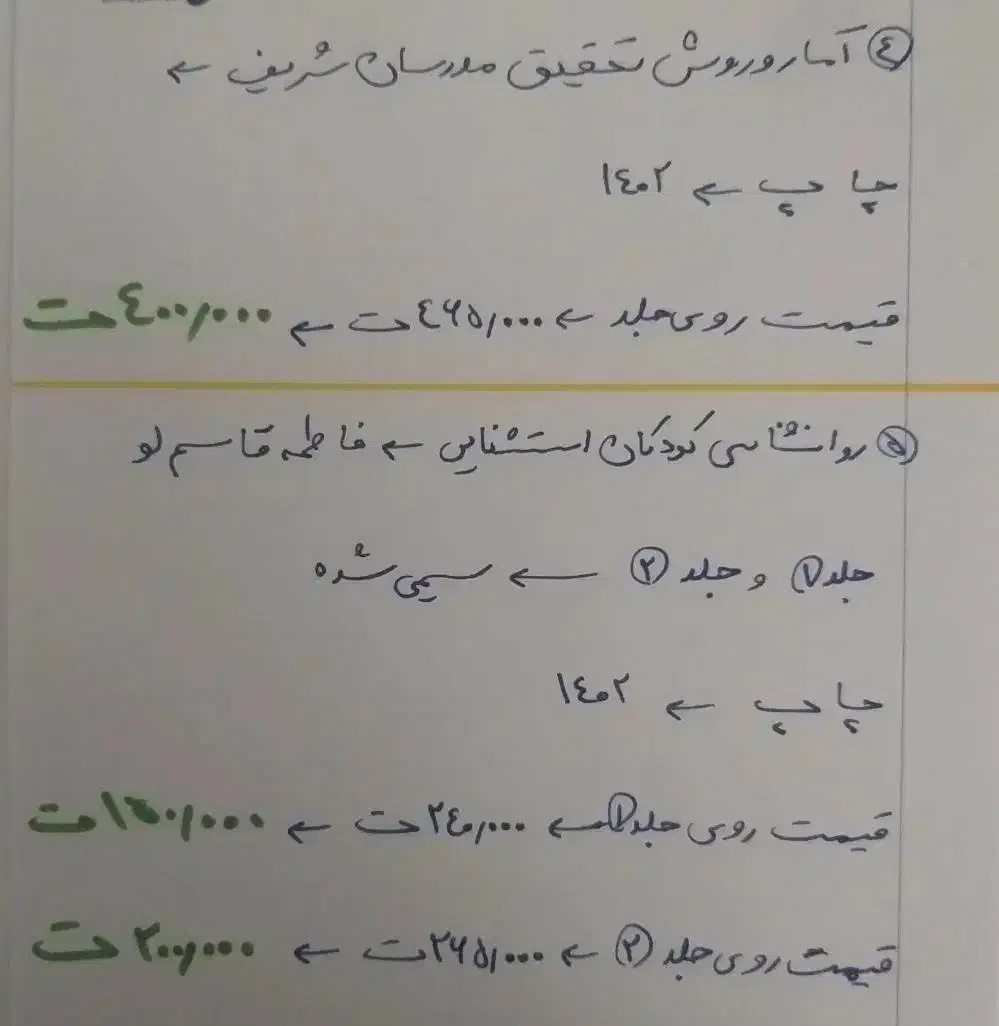 ④ آمار و روش تحقیق مدرسان شریف ←
چاپ ← ۱۴۰۲
قیمت روی جلد ← ۴۶۵,۰۰۰ ت ← ۴۰۰,۰۰۰ ت
⑤ روانشناسی کودکان استثنایی ← فاطمه قاسم لو
جلد ① و جلد ② ← سیمی شده
چاپ ← ۱۴۰۲
قیمت روی جلد ① ← ۲۴۰,۰۰۰ ت ← ت
قیمت روی جلد ② ← ۲۶۵,۰۰۰ ت ← ۲۰۰,۰۰۰ ت